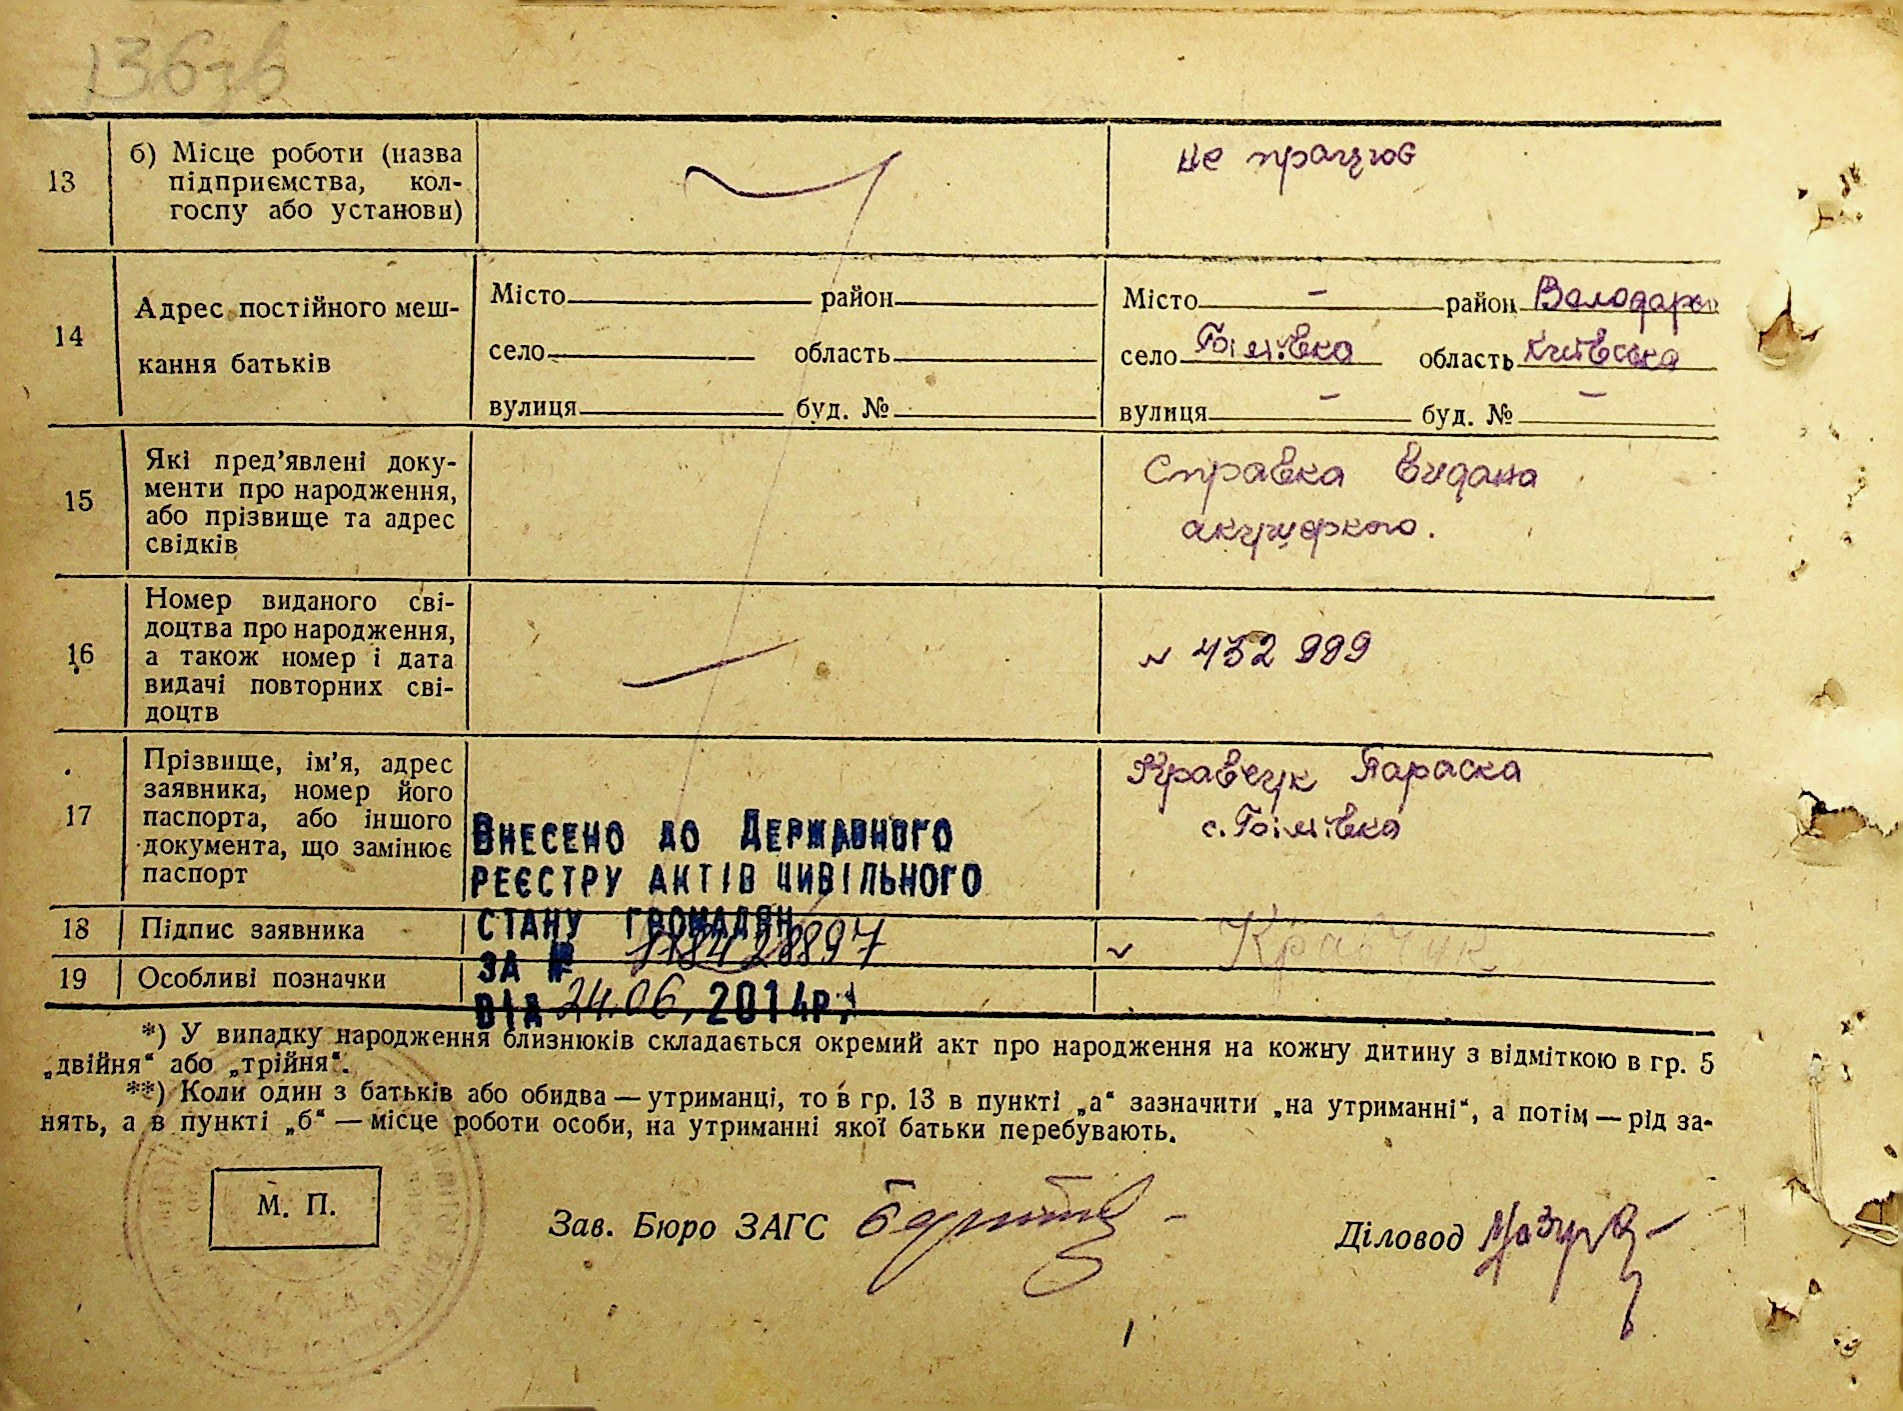 136зв
13
б) Місце роботи (назва
підприємства, кол-
госпу або установи)
не працює
14
Адрес постійного меш-
кання батьків
Місто район
село область
вулиця буд. №
Місто - район Володарс
село Гоїмівка область Київська
вулиця - буд. № -
15
Які пред’явлені доку-
менти про народження,
або прізвище та адрес
свідків
Справка видана
акушеркою.
16
Номер виданого сві-
доцтва про народження,
а також номер і дата
видачі повторних сві-
доцтв
№ 452999
17
Прізвище, ім’я, адрес
заявника, номер його
паспорта, або іншого
документа, що замінює
паспорт
Кравчук Параска
с. Гоїмівка
ВНЕСЕНО ДО ДЕРЖАВНОГО
РЕЄСТРУ АКТІВ ЦИВІЛЬНОГО
СТАНУ ГРОМАДЯН
ЗА №
ВІД 24.06. 2014р.
18
Підпис заявника
Кравчук
19
Особливі позначки
*) У випадку народження близнюків складається окремий акт про народження на кожну дитину з відміткою в гр. 5
„двійня“ або „трійня“.
**) Коли один з батьків або обидва — утриманці, то в гр. 13 в пункті „а“ зазначити „на утриманні“, а потім — рід за-
нять, а в пункті „б“ — місце роботи особи, на утриманні якої батьки перебувають.
М. П.
Зав. Бюро ЗАГС
Діловод